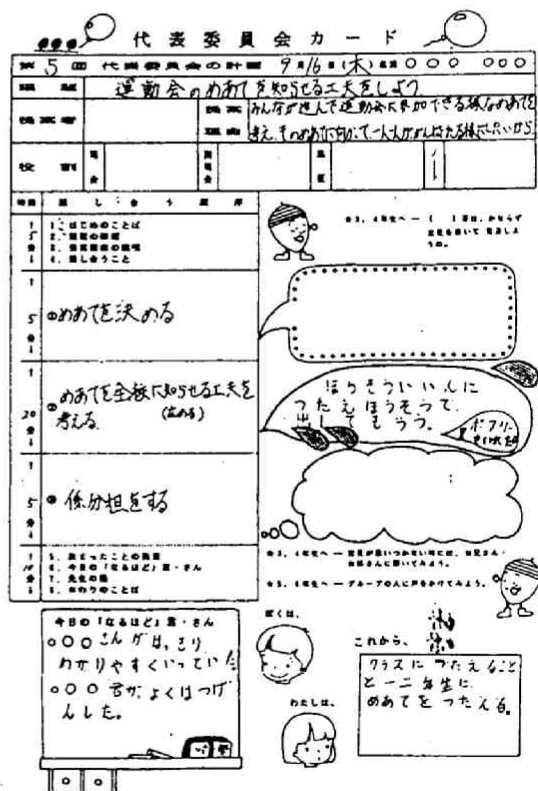 代表委員会カード
第5回 代表委員会の計画 9月16日(木) 名前 ○○○ ○○○
議題 運動会のめあてを知らせる工夫をしよう
提案者
提案理由 みんなが進んで運動会に参加できる様なめあてを
考え、そのめあてに向かって一人一人ががんばれる様にしたいから
役割 司会 副司会 黒板 ノート
時間 話し合う順序
5分
1. はじめのことば
4. 話し合うこと
5分
①めあてを決める
20分
②めあてを全校に知らせる工夫を
考える (広める)
5分
③係分担をする
5. 決まったことの発表
6. 今日の「なるほど」君・さん
7. 先生の話
8. おわりのことば
ほうそういいんに
つたえほうそうで
出してもらう。
★3、4年生へ ― 意見が思いつかない時には、お兄さん・
お姉さんに聞いてみよう。
★5、6年生へ ― グループの人に声をかけてみよう。
今日の「なるほど」君・さん
○○○さんがはっきり
わかりやすくいっていた
○○○君が、よくはつげ
んした。
ぼくは、
わたしは、
これから、
クラスにつたえること
と一二年生に
めあてをつたえる。